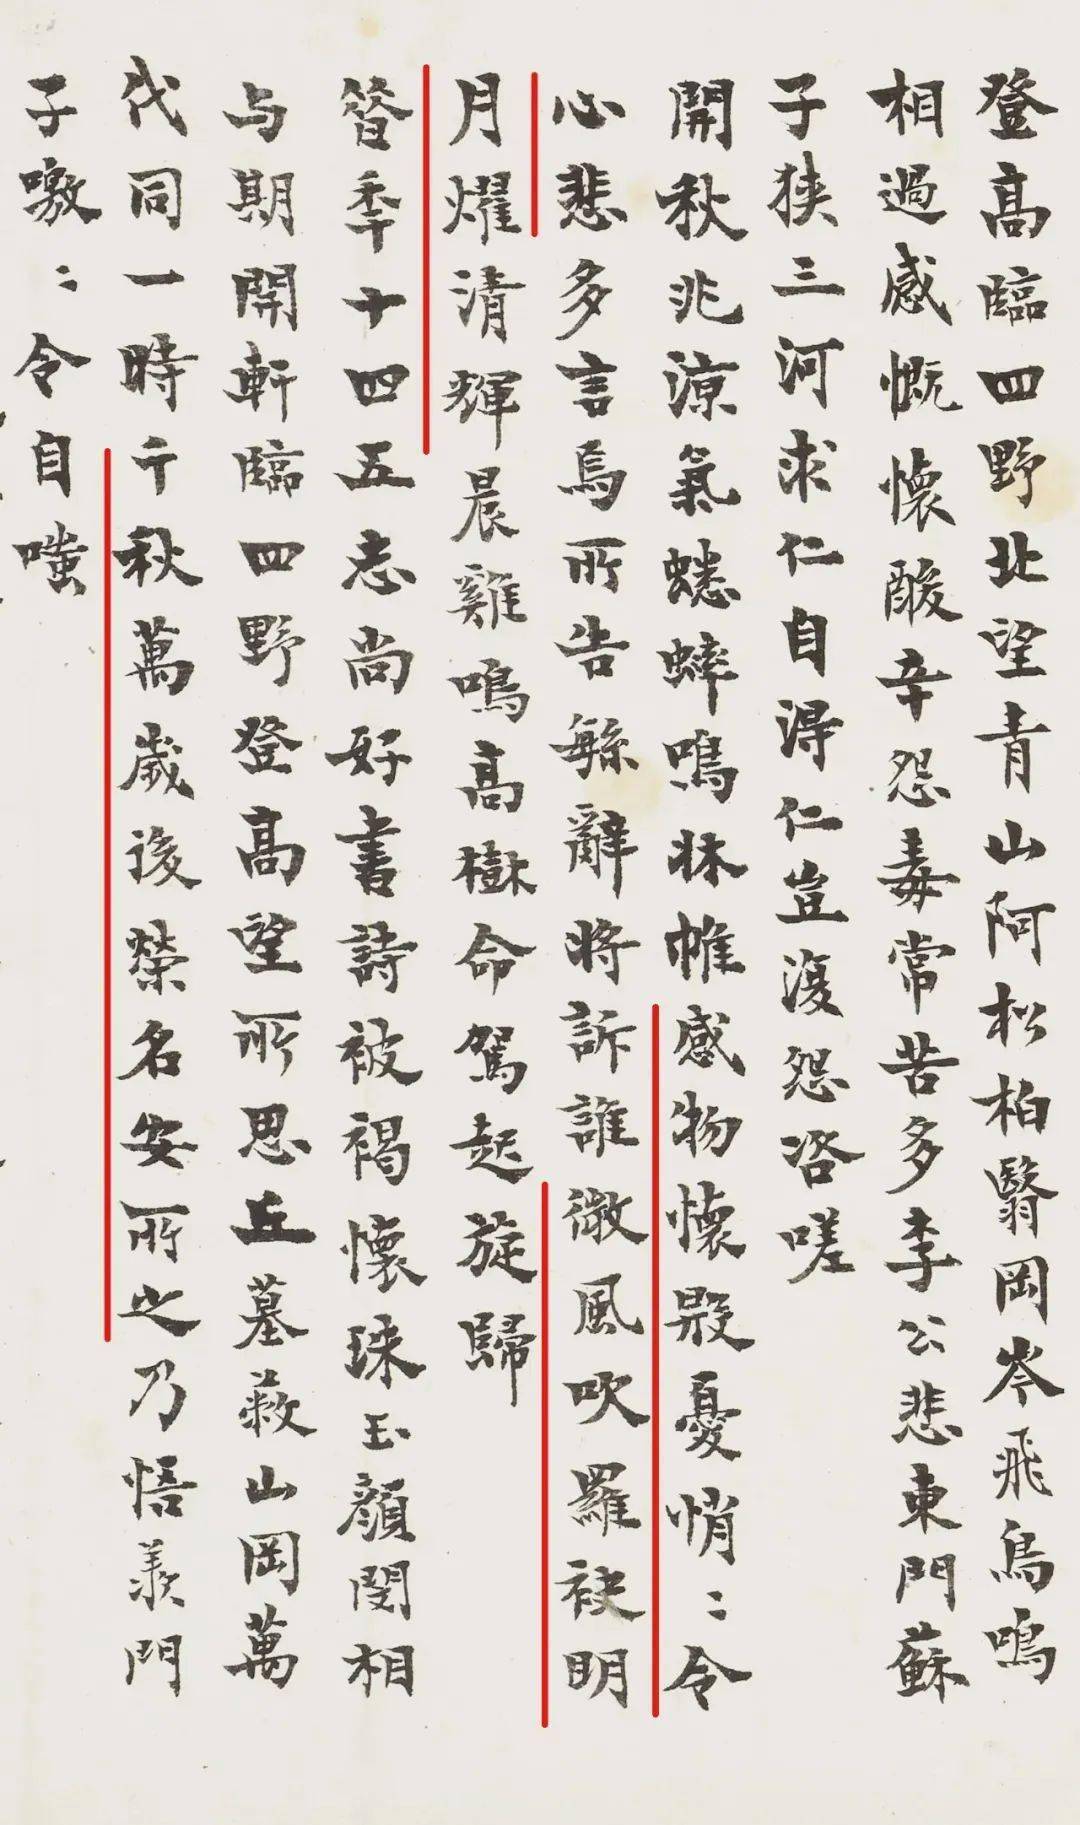 登高臨四野北望青山阿松柏翳岡岑飛鳥鳴
相過感慨懷酸辛怨毒常苦多李公悲東門蘇
子狹三河求仁自得仁豈復怨咨嗟
開秋兆涼氣蟋蟀鳴牀帷感物懷殷憂悄〻令
心悲多言焉所告繁辭將訴誰微風吹羅袂明
月燿清輝晨雞鳴高樹命駕起旋歸
昔年十四五志尚好書詩被褐懷珠玉顏閔相
与期開軒臨四野登高望所思丘墓蔽山岡萬
代同一時千秋萬歲後榮名安所之乃悟羨門
子噭〻令自嗤